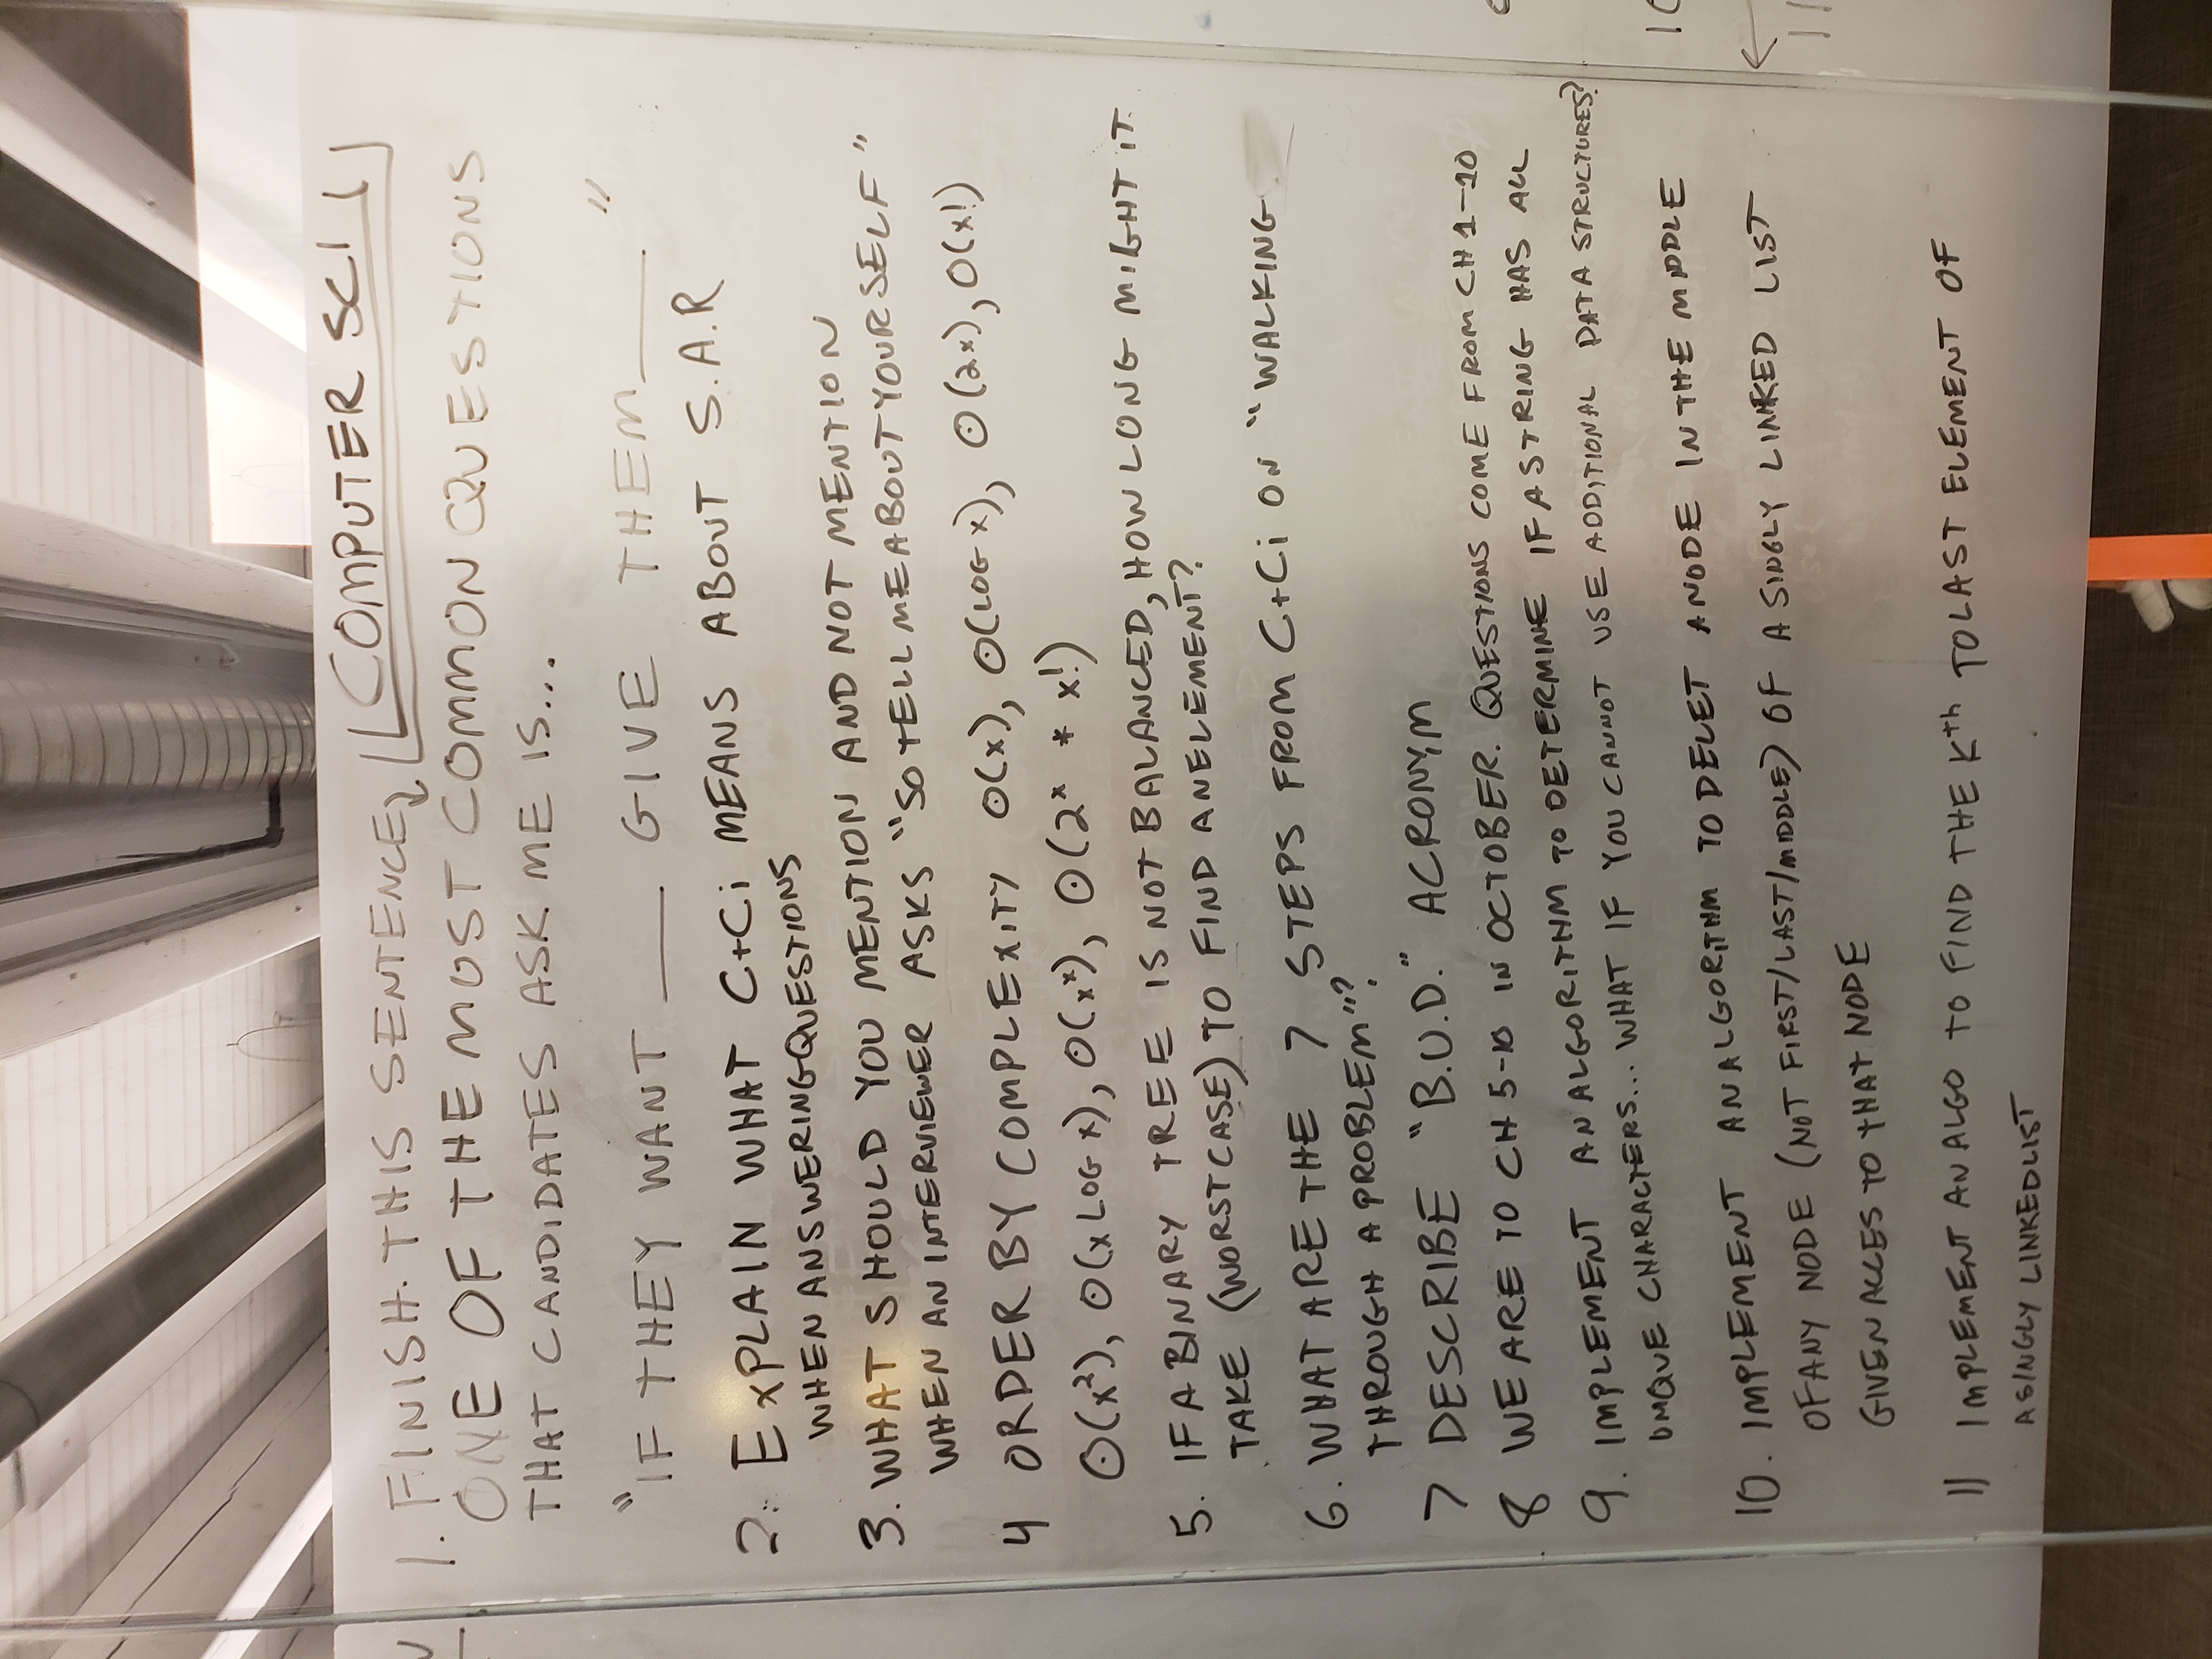 COMPUTER SCI
1. FINISH THIS SENTENCE
ONE OF THE MOST COMMON QUESTIONS
THAT CANDIDATES ASK ME IS...
"IF THEY WANT ___ GIVE THEM ___"
2. EXPLAIN WHAT C+Ci MEANS ABOUT S.A.R
WHEN ANSWERING QUESTIONS
3. WHAT SHOULD YOU MENTION AND NOT MENTION
WHEN AN INTERVIEWER ASKS "SO TELL ME ABOUT YOURSELF"
4 ORDER BY COMPLEXITY O(x), O(LOG x), O(2x), O(x!)
O(x²), O(x LOG x), O(xˣ), O(2ˣ * x!)
5. IF A BINARY TREE IS NOT BALANCED, HOW LONG MIGHT IT
TAKE (WORST CASE) TO FIND AN ELEMENT?
6. WHAT ARE THE 7 STEPS FROM C+Ci ON "WALKING
THROUGH A PROBLEM"?
7 DESCRIBE "B.U.D." ACRONYM
8 WE ARE TO CH 5-10 IN OCTOBER. QUESTIONS COME FROM CH 1-10
9. IMPLEMENT AN ALGORITHM TO DETERMINE IF A STRING HAS ALL
UNIQUE CHARACTERS... WHAT IF YOU CANNOT USE ADDITIONAL DATA STRUCTURES?
10. IMPLEMENT AN ALGORITHM TO DELET A NODE IN THE MIDDLE
OF ANY NODE (NOT FIRST/LAST/MIDDLE) OF A SINGLY LINKED LIST
GIVEN ACCES TO THAT NODE
11 IMPLEMENT AN ALGO TO FIND THE Kth TO LAST ELEMENT OF
A SINGLY LINKED LIST